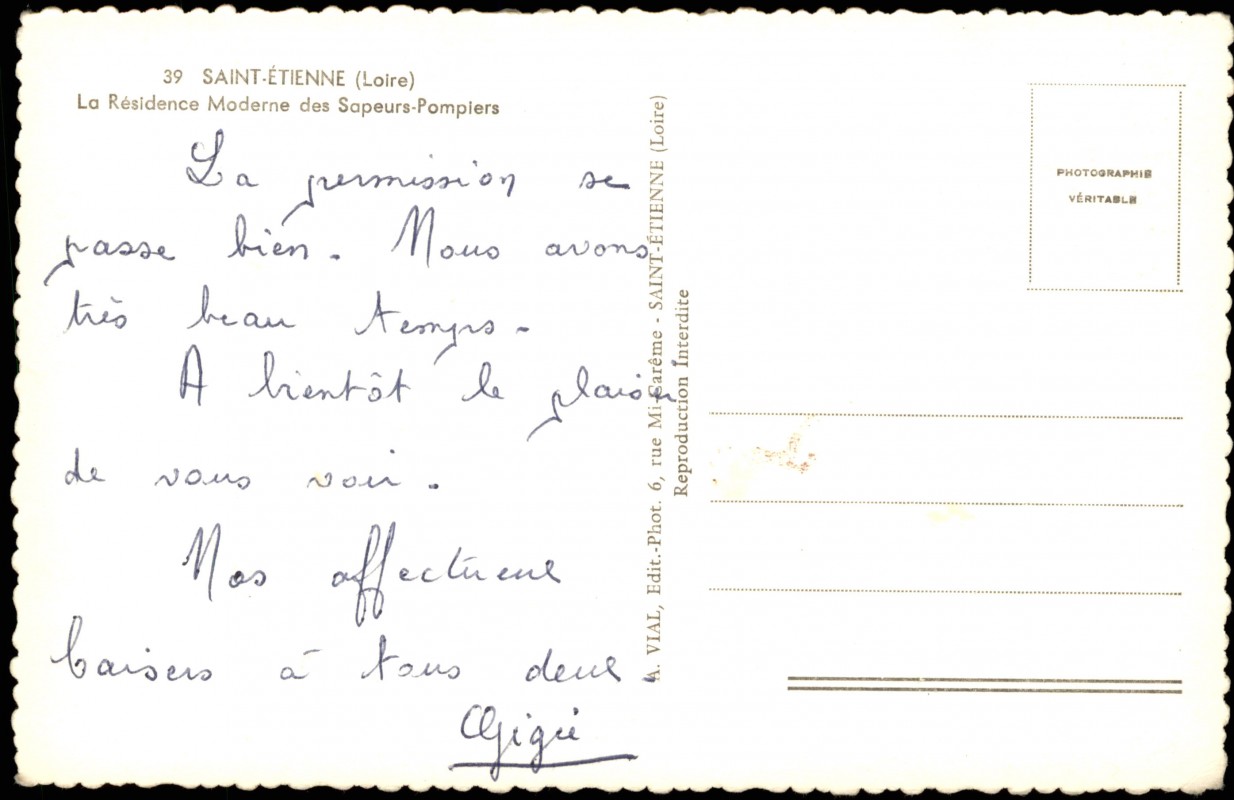 39 SAINT-ÉTIENNE (Loire)
La Résidence Moderne des Sapeurs-Pompiers
La permission se
passe bien. Nous avons
très beau temps.
A bientôt le plaisir
de vous voir.
Nos affectueux
baisers à tous deux.
Gigie
A. VIAL, Edit.-Phot. 6, rue Mi-Carême - SAINT-ÉTIENNE (Loire)
Reproduction Interdite
PHOTOGRAPHIE
VÉRITABLE